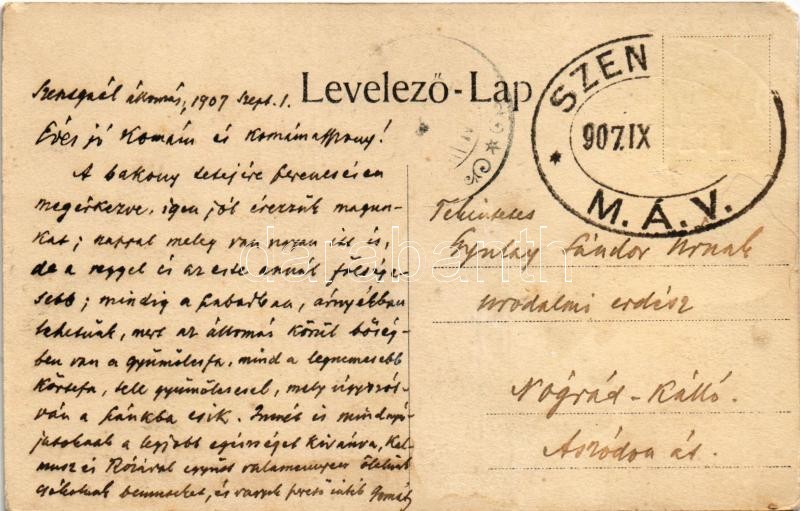 Levelező-Lap
SZEN
907.IX
M.Á.V.
állomás, 1907 Szept. 1.
Édes jó Komám és Komámasszony!
A bakony tetejére szerencsésen
megérkezve, igen jól érezzük magun-
kat; nappal meleg van ugyan itt is,
de a reggel és az este annál fölsége-
sebb; mindig a szabadban, árnyékban
lehetünk, mert az állomás körül bőség-
ben van a gyümölcsfa, mind a legnemesebb
körtefa, tele gyümölcscsel, mely úgyszól-
ván a szánkba esik. Innét is mindnyá-
jatoknak a legjobb egészséget kivánva, Kál-
és Rózával együtt valamennyien ölelünk
csókolunk benneteket, és vagyok szerető
Tekintetes
Gyulay Sándor Úrnak
uradalmi erdész
Nógrád-Kálló.
Aszódon át.
darabanth